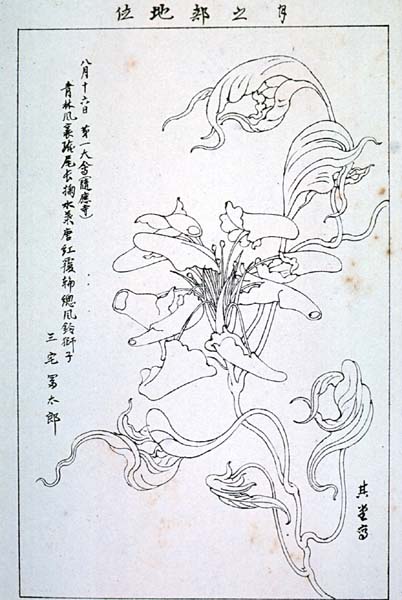 月之部地位
八月十六日 第一大会(随應寺)
青林風裏尾長掬水葉唐紅覆輪總風鈴獅子
三宅冨太郎
其堂写